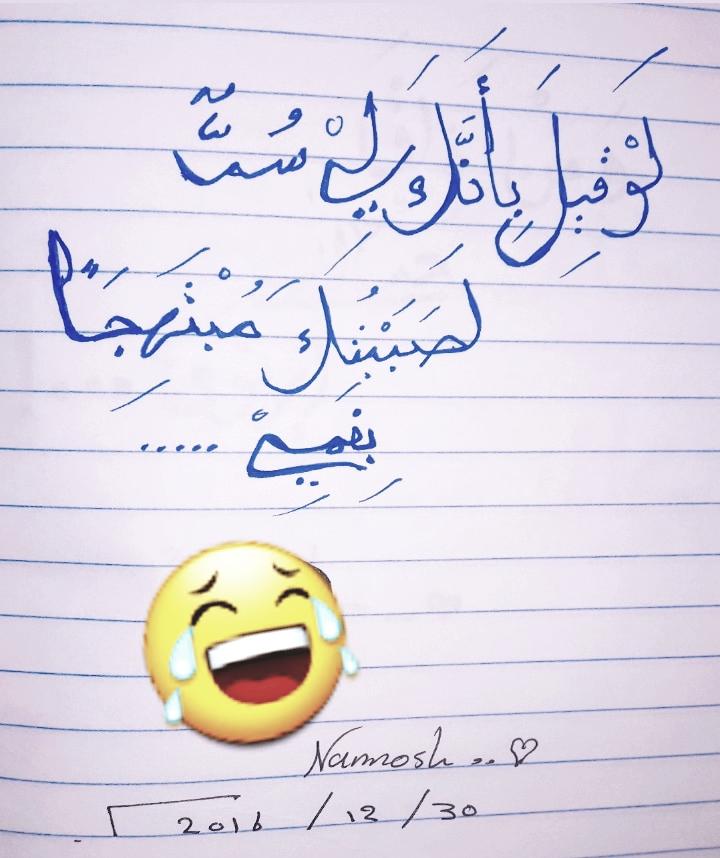 لَوْ قِيلَ بِأَنَّكَ لِيْ سُمٌّ
لَصَبَبْتُكَ مُبْتَهِجَاً
بِفَمِيْ .....
Nanosh .. ♡
2016 / 12 / 30